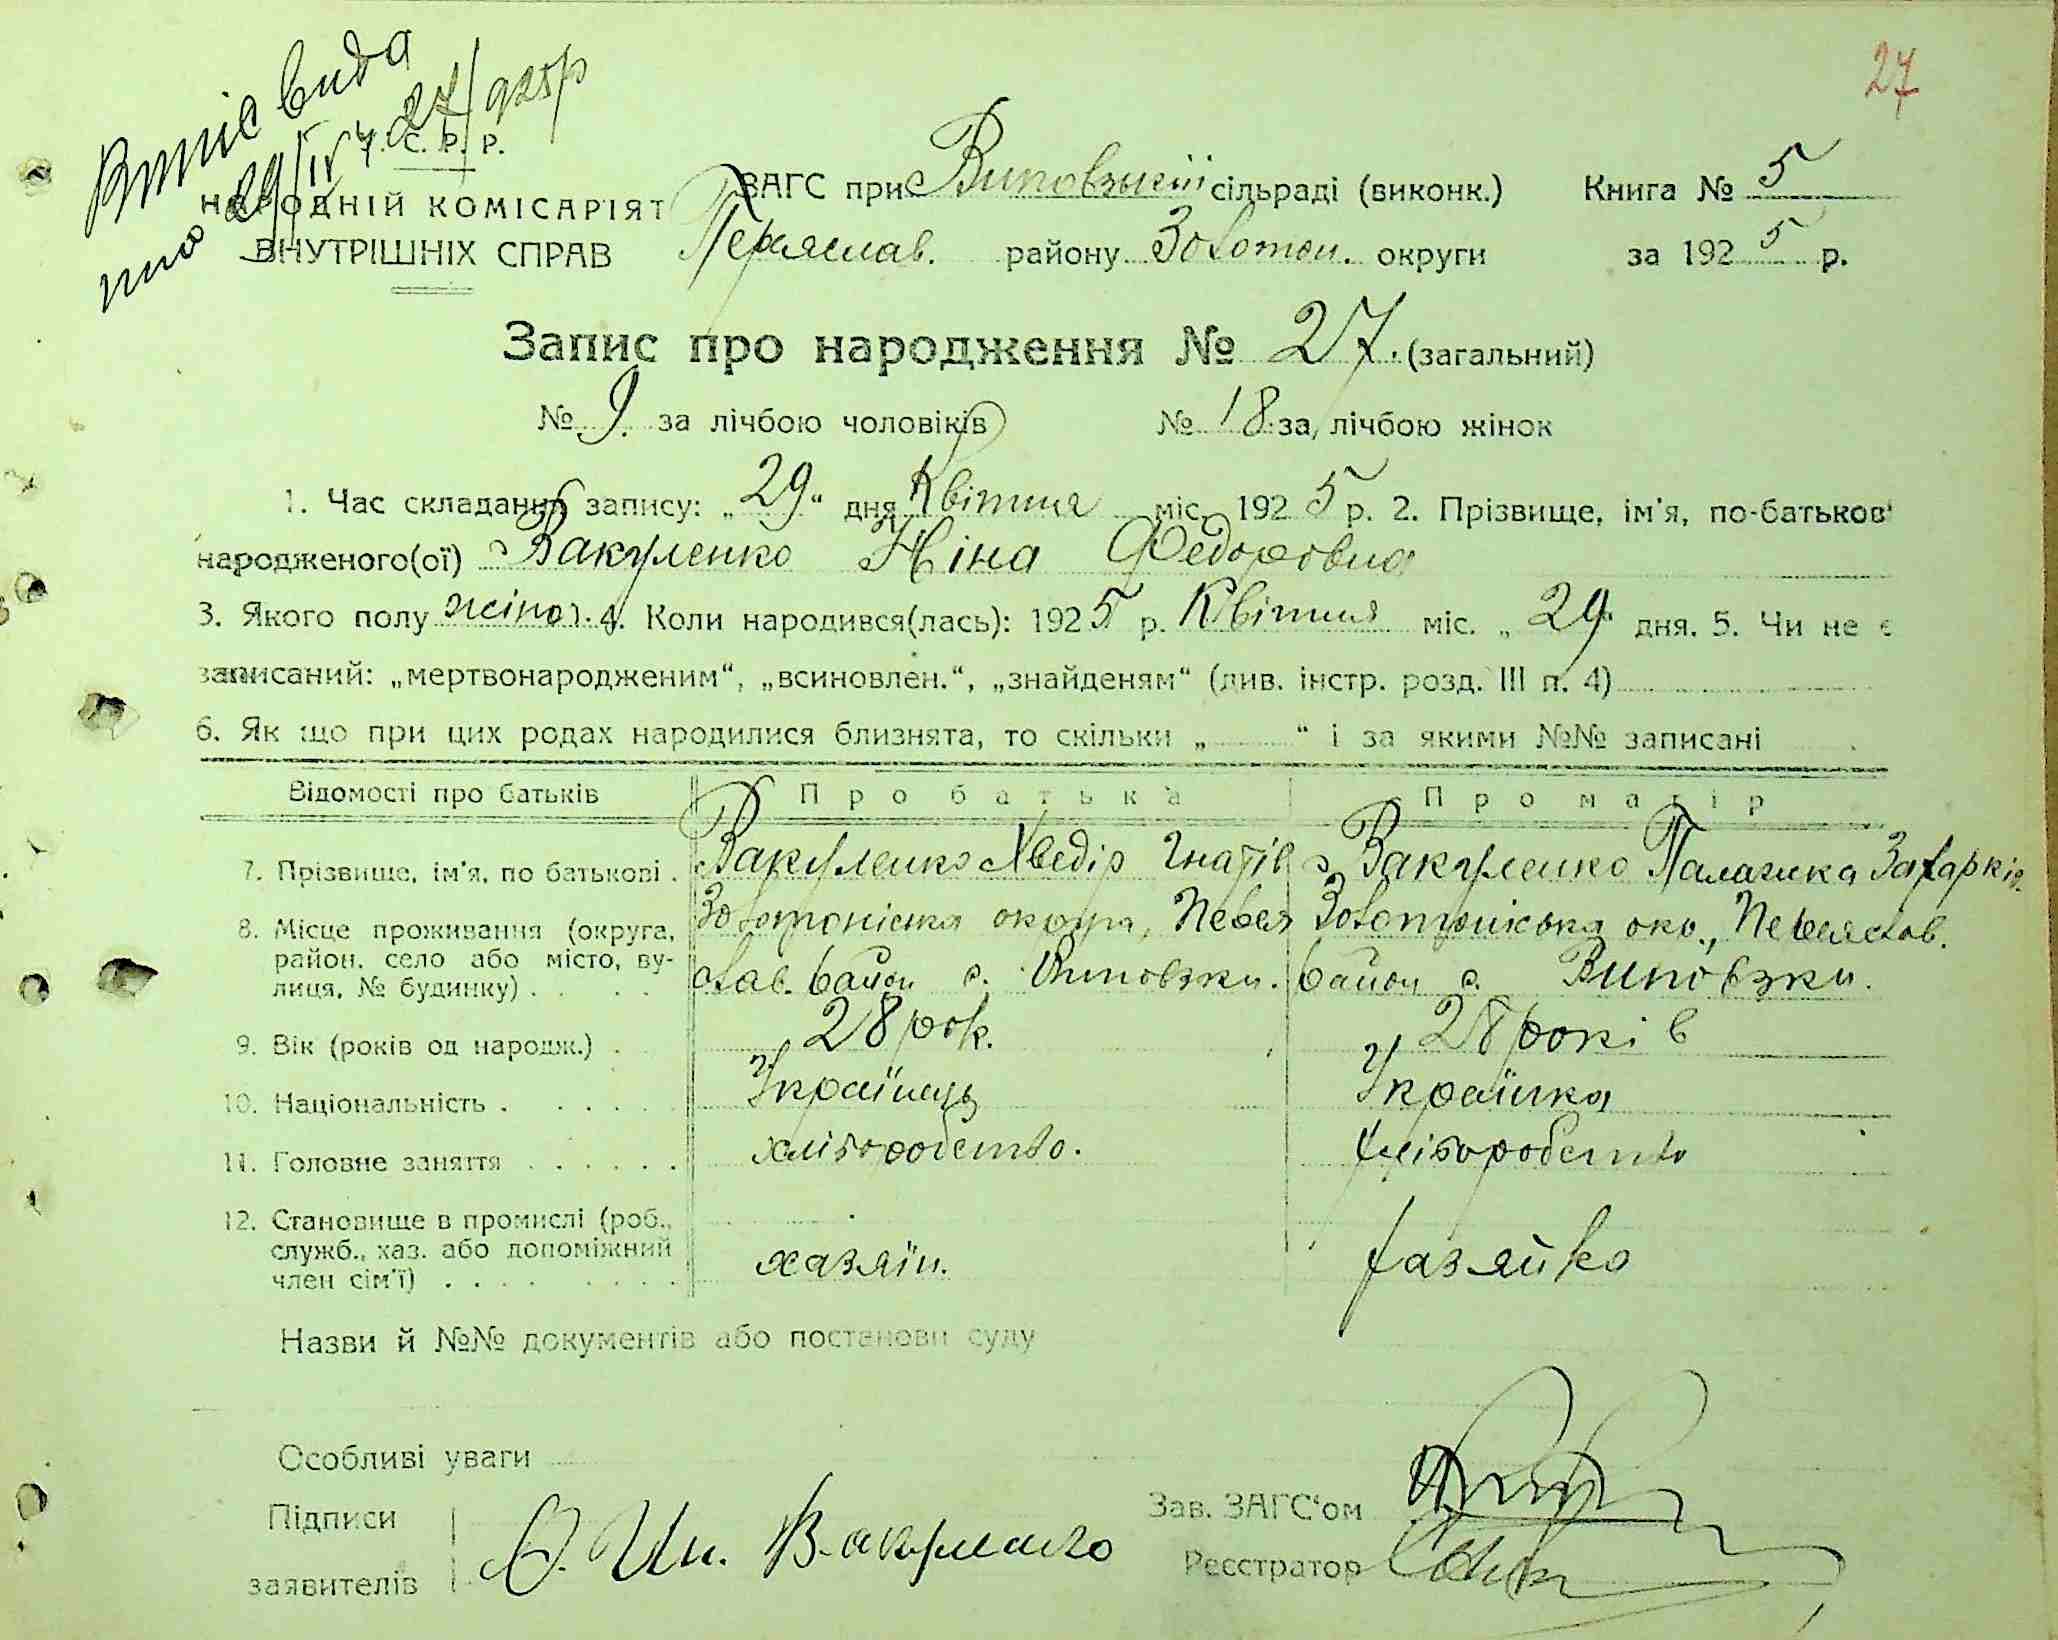 27
Витіс вида
но 29/IV 27/925р
У. С. Р. Р.
НАРОДНІЙ КОМІСАРІЯТ
ВНУТРІШНІХ СПРАВ
ЗАГС при Виповзькій сільраді (виконк.) Книга № 5
Переяслав. району Золотон. округи за 1925 р.
Запис про народження № 27. (загальний)
№ 9. за лічбою чоловіків № 18. за лічбою жінок
1. Час складання запису: „29“ дня Квітня міс. 1925 р. 2. Прізвище, ім'я, по-батьков'
народженого(ої) Вакуленко Ніна Федоровна
3. Якого полу жіноч. 4. Коли народився(лась): 1925 р. Квітня міс. „29“ дня. 5. Чи не є
записаний: „мертвонародженим“, „всиновлен.“, „знайденям“ (див. інстр. розд. III п. 4)
6. Як що при цих родах народилися близнята, то скільки „ “ і за якими №№ записані
Відомості про батьків Про батька Про матір
7. Прізвище, ім'я, по батькові . Вакуленко Хведір Гнатів Вакуленко Палажка Захарків.
8. Місце проживання (округа, район, село або місто, вулиця, № будинку) . . . .
Золотоніська округа, Переяслав. район с. Виповзки.
Золотоніська окр., Переяслав. район с. Виповзки.
9. Вік (років од народж.) . 28 рок. 28 років
10. Національність . . . . . Українець Українка
11. Головне заняття . . . . . . хліборобство. хліборобство
12. Становище в промислі (роб., служб., хаз. або допоміжний член сім'ї) . . . . . . . . хазяїн. хазяйка
Назви й №№ документів або постанови суду
Особливі уваги
Підписи
заявителів
Ф. Гн. Вакуленко
Зав. ЗАГС'ом
Реєстратор